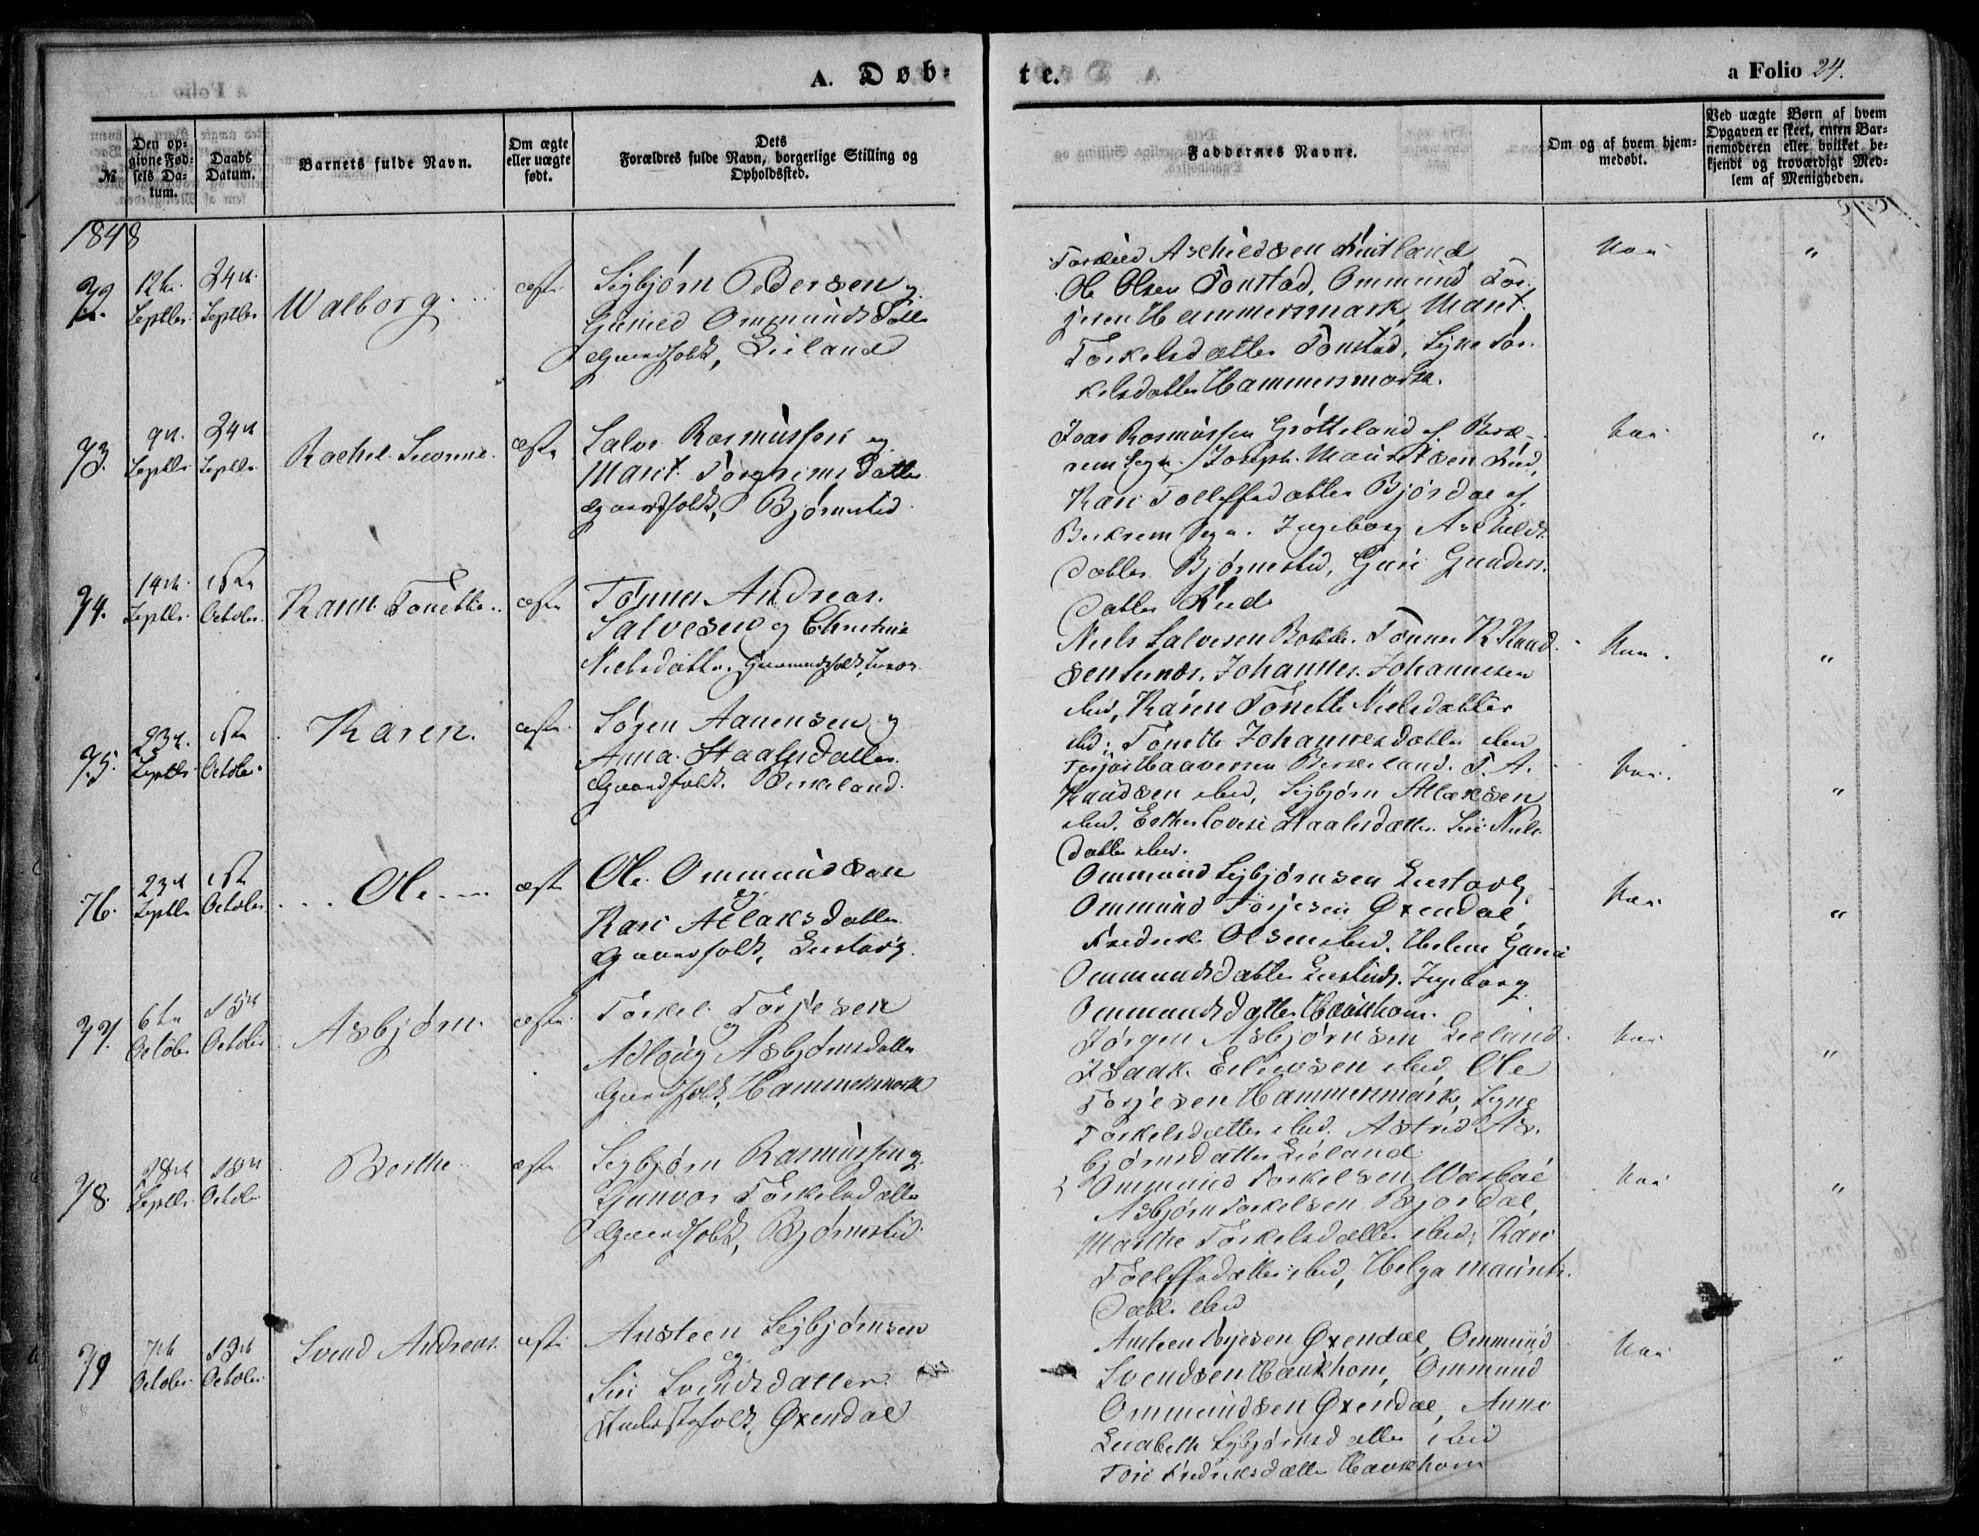 A. Døb=
te.
a Folio 24.
№
Den op-
givne Fød-
sels Da-
tum.
Daabs
Datum.
Barnets fulde Navn.
Om ægte
eller uægte
født.
Dets
Forældres fulde Navn, borgerlige Stilling og
Opholdssted.
Faddernes Navne.
Om og af hvem hjem-
medøbt.
Ved uægte Børn af hvem
Opgaven er skeet, enten Bar-
nemoderen eller hvilket be-
kjendt og troværdigt Med-
lem af Menigheden.
1848
72.
12te Septbr
24de Septbr
Walborg
ægte
Sigbjørn Pedersen og
Ommunds Datter
Gaardfolk, Lieland
Ole Olsen Tonstad, Ommund Tor-
jesen Hammersmark, Marit
Torkelsdatter Tonstad, Signe Tor-
kelsdatter Hammersmark.
Naa
"
73.
9de Septbr
24de Septbr
Rachel
ægte
Salve Rasmussen og
Marit Torgrims Datter
Gaardfolk, Bjørnestad
Ivar Rasmussen Grøtteland af Birk-
rem Sogn, Joseph Mauritsen
Kari Tollefsdatter Bjordal af
Birkrem Sogn. Ingeborg Askilds
Datter Bjørnestad, Guri Gunders
Datter
Naa
"
74.
14de Septbr
1ste October
Karen Tonette
ægte
Tønnes Andreas
Salvesen og Christine
Nielsdatter, Gaardfolk
Niels Salvesen Tønnes K. Knud-
sen Johannes Johannesen
ibid, Karen Tonette Nielsdatter
ibid, Tonette Johannesdatter ibid
Naa
"
75.
23de Septbr
1ste October
Karen
ægte
Søren Aanensen og
Anna Staalesdatter
Gaardfolk, Birkeland
Torjus Haaversen Birkeland. T. A.
Knudsen ibid, Sigbjørn Atlaksen
ibid, Staalesdatter. Siri Niels
Datter ibid.
Naa
"
76.
23de Septbr
1ste October
Ole
ægte
Ole Ommundsen
og
Kari Atlaksdatter
Gaardfolk,
Ommund Sigbjørnsen
Ommund Torjesen Øxendal,
Fredrik Olsen ibid. Helene
Ommundsdatter Ingeborg
Ommundsdatter Haukhom.
Naa
"
77.
6te October
15de October
Asbjørn
ægte
Torkel Torjesen
og
Adloug Asbjørnsdatter
Gaardfolk, Hammersmark
Jørgen Asbjørnsen Lieland
Isaak ibid, Ole
Torjesen Hammersmark, Signe
Torkelsdatter ibid. Astrid As-
bjørnsdatter Lieland
Naa
"
78.
18de Septbr
October
Berthe
ægte
Sigbjørn Rasmussen og
Gunvor Torkelsdatter
Gaardfolk, Bjørnestad
Ommund Torkelsen
Asbjørn Torkelsen Bjordal,
Marthe Torkelsdatter ibid, Kari
Tollefsdatter ibid, Helga Maurits
Datter ibid
Naa
"
79
7de October
October
Svend Andreas
ægte
Ansteen Sigbjørnsen
og
Siri Svendsdatter
Øxendal
Ansteen Torjesen Øxendal, Ommund
Svendsen Haukhom, Ommund
Ommundsen Øxendal, Anne
Lisabeth Sigbjørnsdatter ibid
Tori Fredriksdatter Haukhom
Naa
"